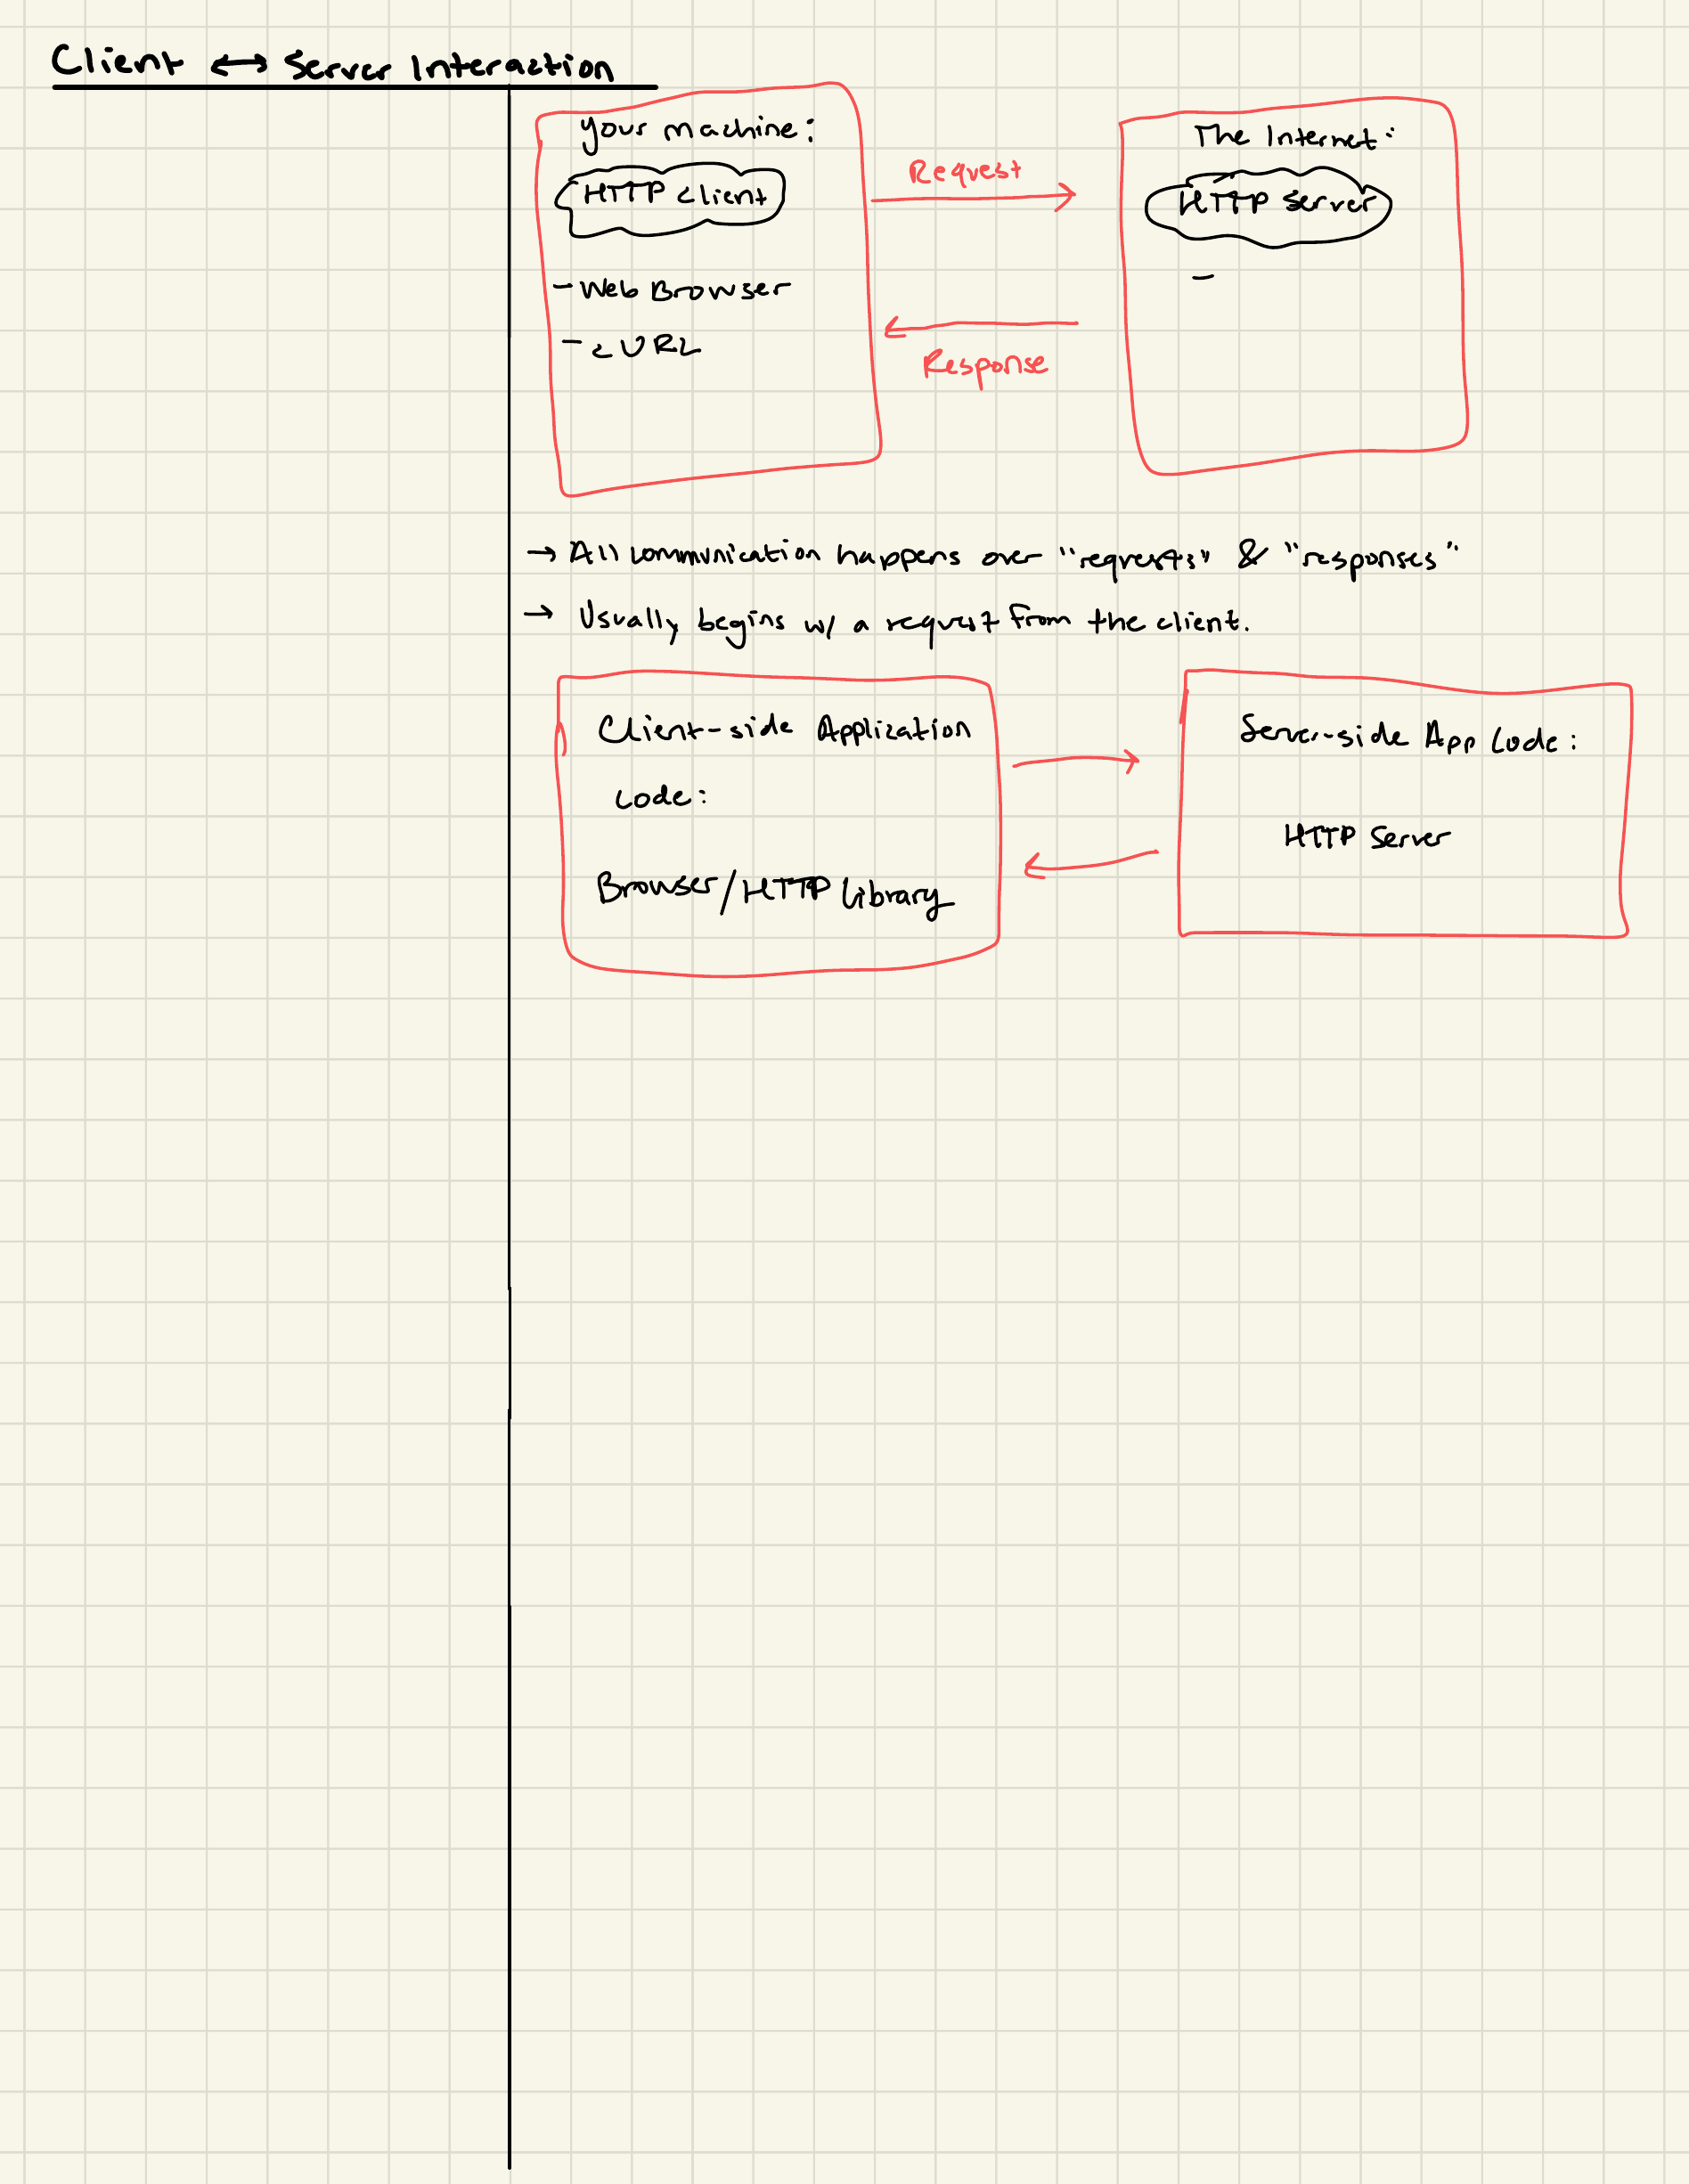 Client ↔ Server Interaction
your machine:
HTTP client
- Web Browser
- cURL
Request
Response
The Internet:
HTTP Server
-
→ All communication happens over "requests" & "responses"
→ Usually begins w/ a request from the client.
Client-side Application
Code:
Browser/HTTP Library
Server-side App Code:
HTTP Server